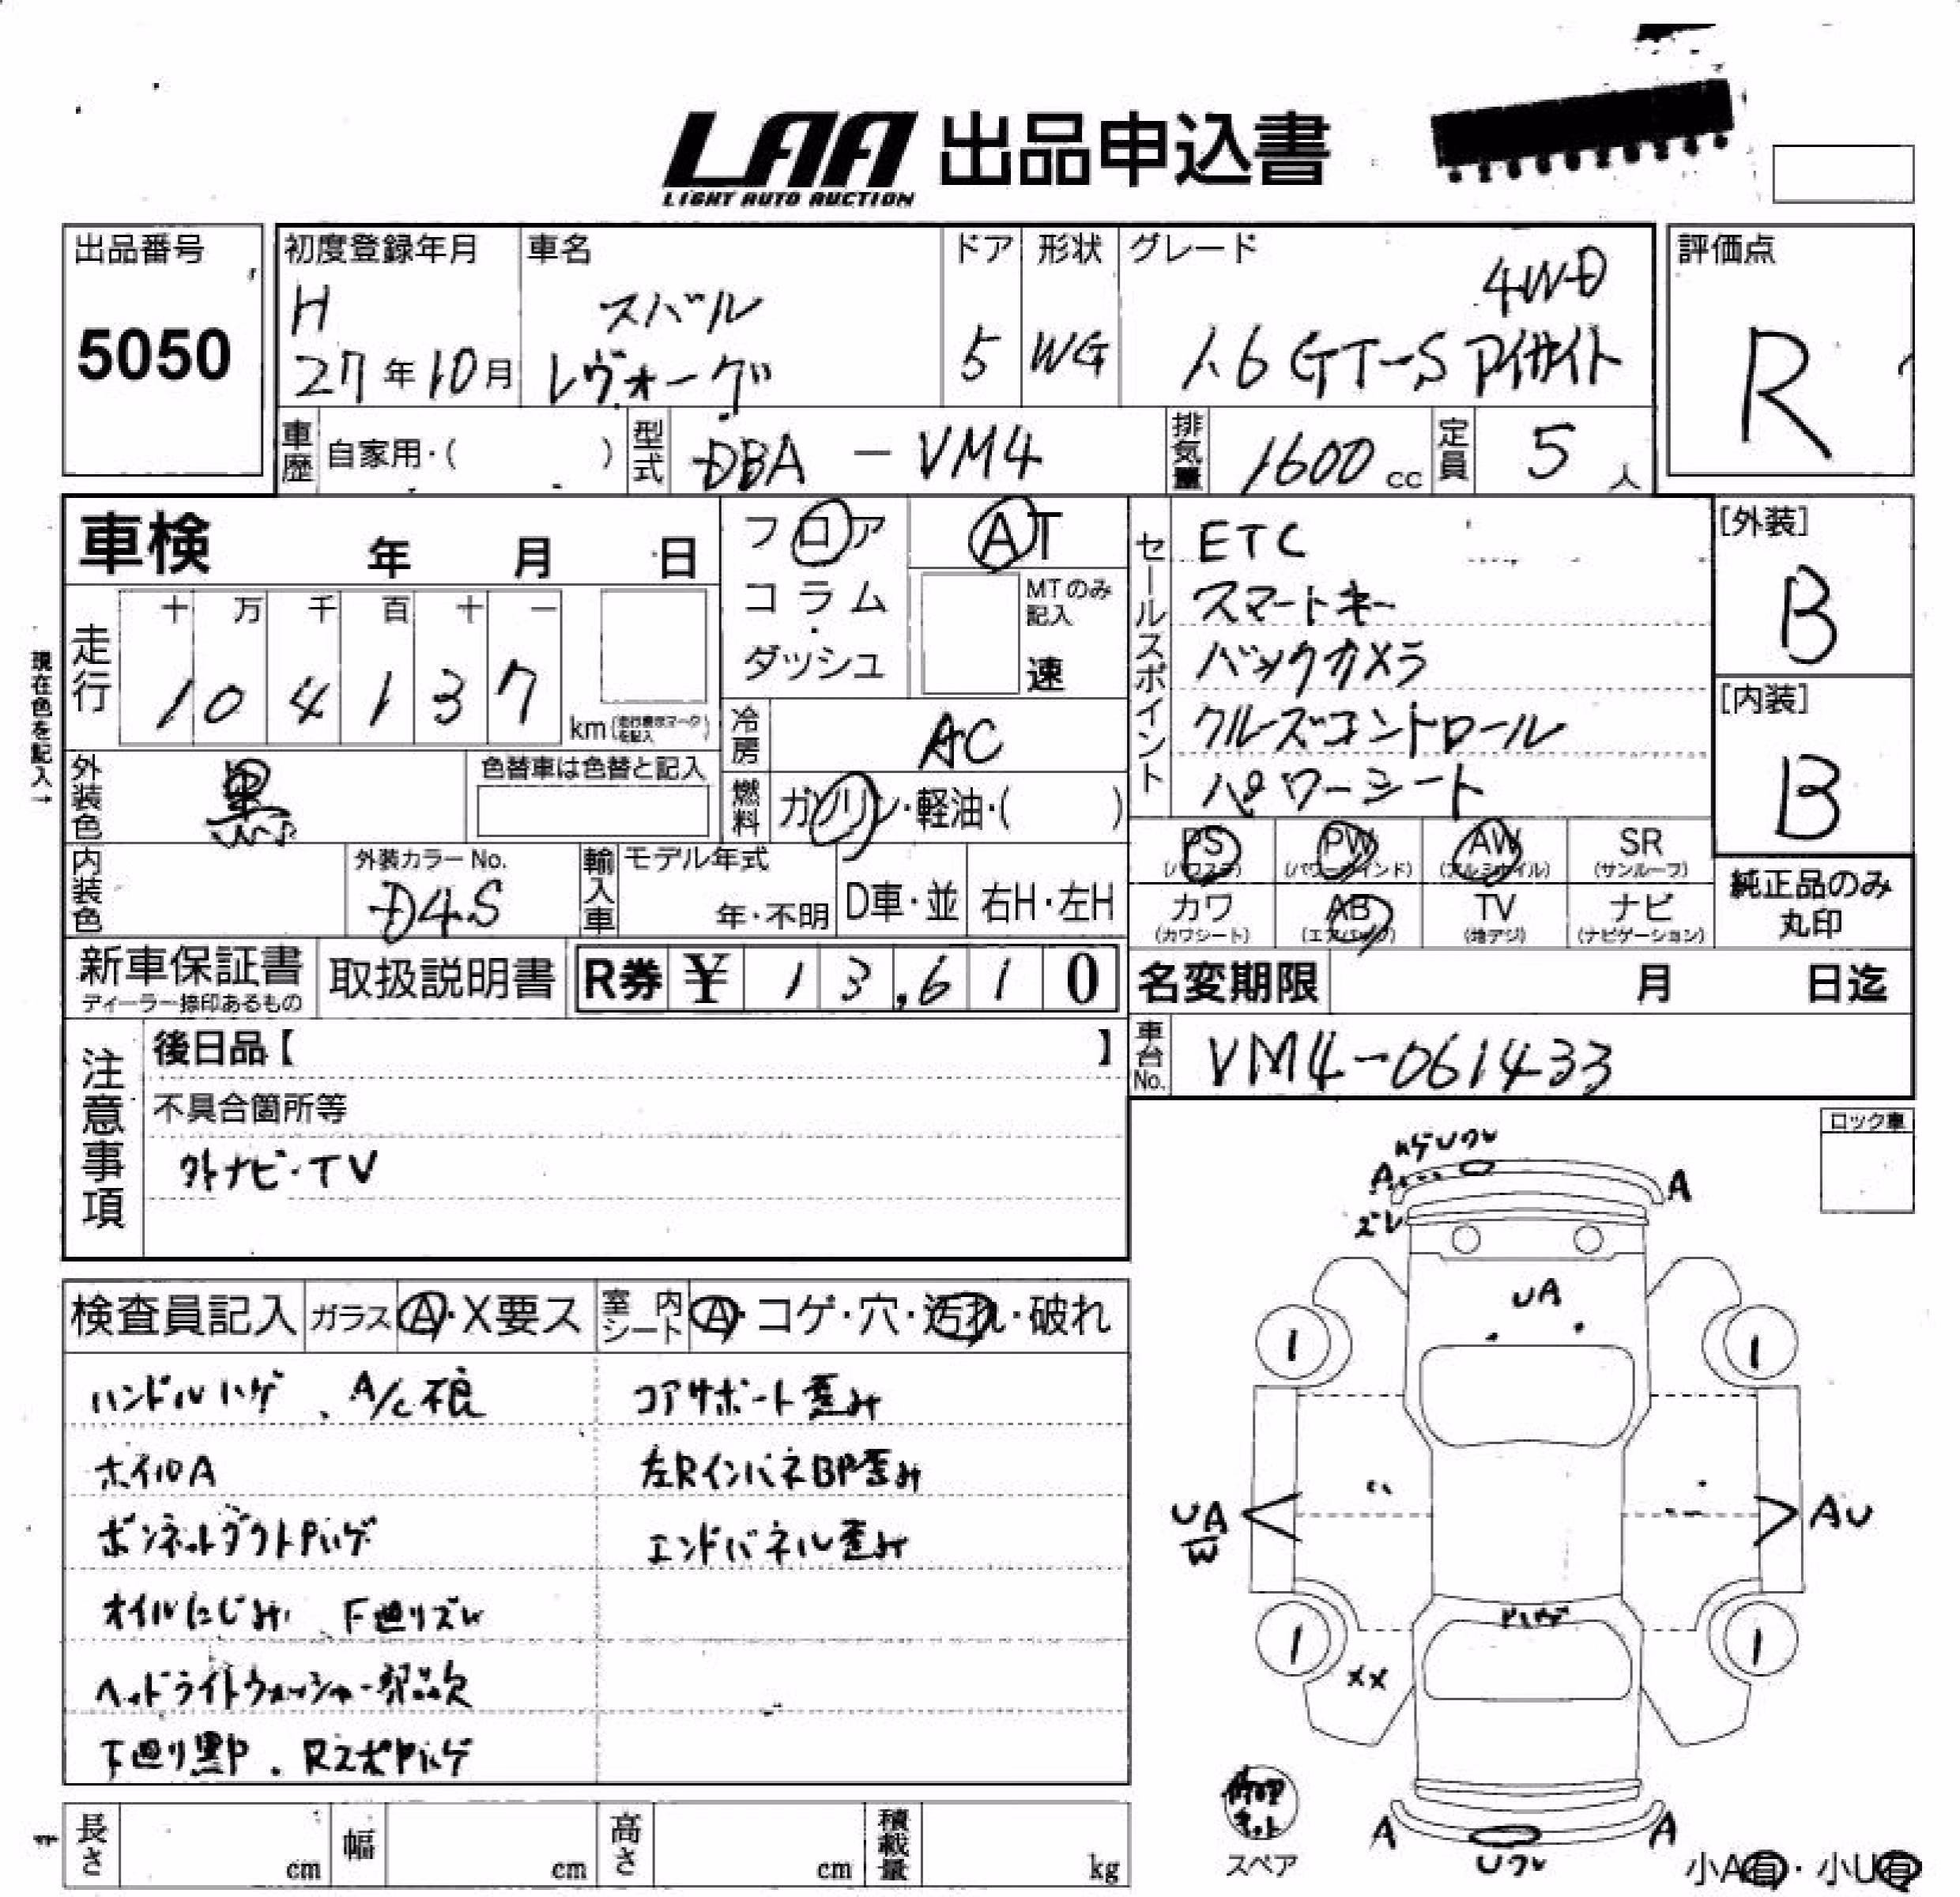 LAA 出品申込書
LIGHT AUTO AUCTION
出品番号
5050
初度登録年月
H
27年10月
車名
スバル
レヴォーグ
ドア
5
形状
WG
グレード
4WD
1.6 GT-S アイサイト
評価点
R
車歴 自家用・( )
型式 DBA - VM4
排気量 1600 cc
定員 5 人
車検 年 月 日
フロア
コラム・
ダッシュ
AT
MTのみ記入
速
セールスポイント
ETC
スマートキー
バックカメラ
クルーズコントロール
パワーシート
[外装]
B
[内装]
B
現在色を記入→
走行
十 万 千 百 十 一
1 0 4 1 3 7
km(走行表示マークを記入)
冷房 AC
外装色 黒
色替車は色替と記入
燃料 ガソリン・軽油・( )
内装色
外装カラーNo.
D4S
輸入車
モデル年式
年・不明
D車・並
右H・左H
PS (パワステ)
PW (パワーウインド)
AW (アルミホイル)
SR (サンルーフ)
カワ (カワシート)
AB (エアバッグ)
TV (地デジ)
ナビ (ナビゲーション)
純正品のみ
丸印
新車保証書
ディーラー捺印あるもの
取扱説明書
R券 ¥ 13,610
名変期限 月 日迄
車台No. VM4-061433
注意事項
後日品【 】
不具合箇所等
外ナビ・TV
ロック車
検査員記入
ガラス A・X要ス
室内シート A・コゲ・穴・汚れ・破れ
ハンドルハゲ、A/C不良
ホイルA
ボンネットダクトPハゲ
オイルにじみ、下廻りズレ
ヘッドライトウォッシャー部品欠
下廻り黒P、RスポPハゲ
コアサポート歪み
左RインパネBP歪み
エンドパネル歪み
ハゲ Uワレ
A
A
ズレ
UA
1
1
UA
W
AU
Pハゲ
1
1
XX
修理キット
スペア
A
A
Uワレ
小A有・小U有
長さ cm
幅 cm
高さ cm
積載量 kg